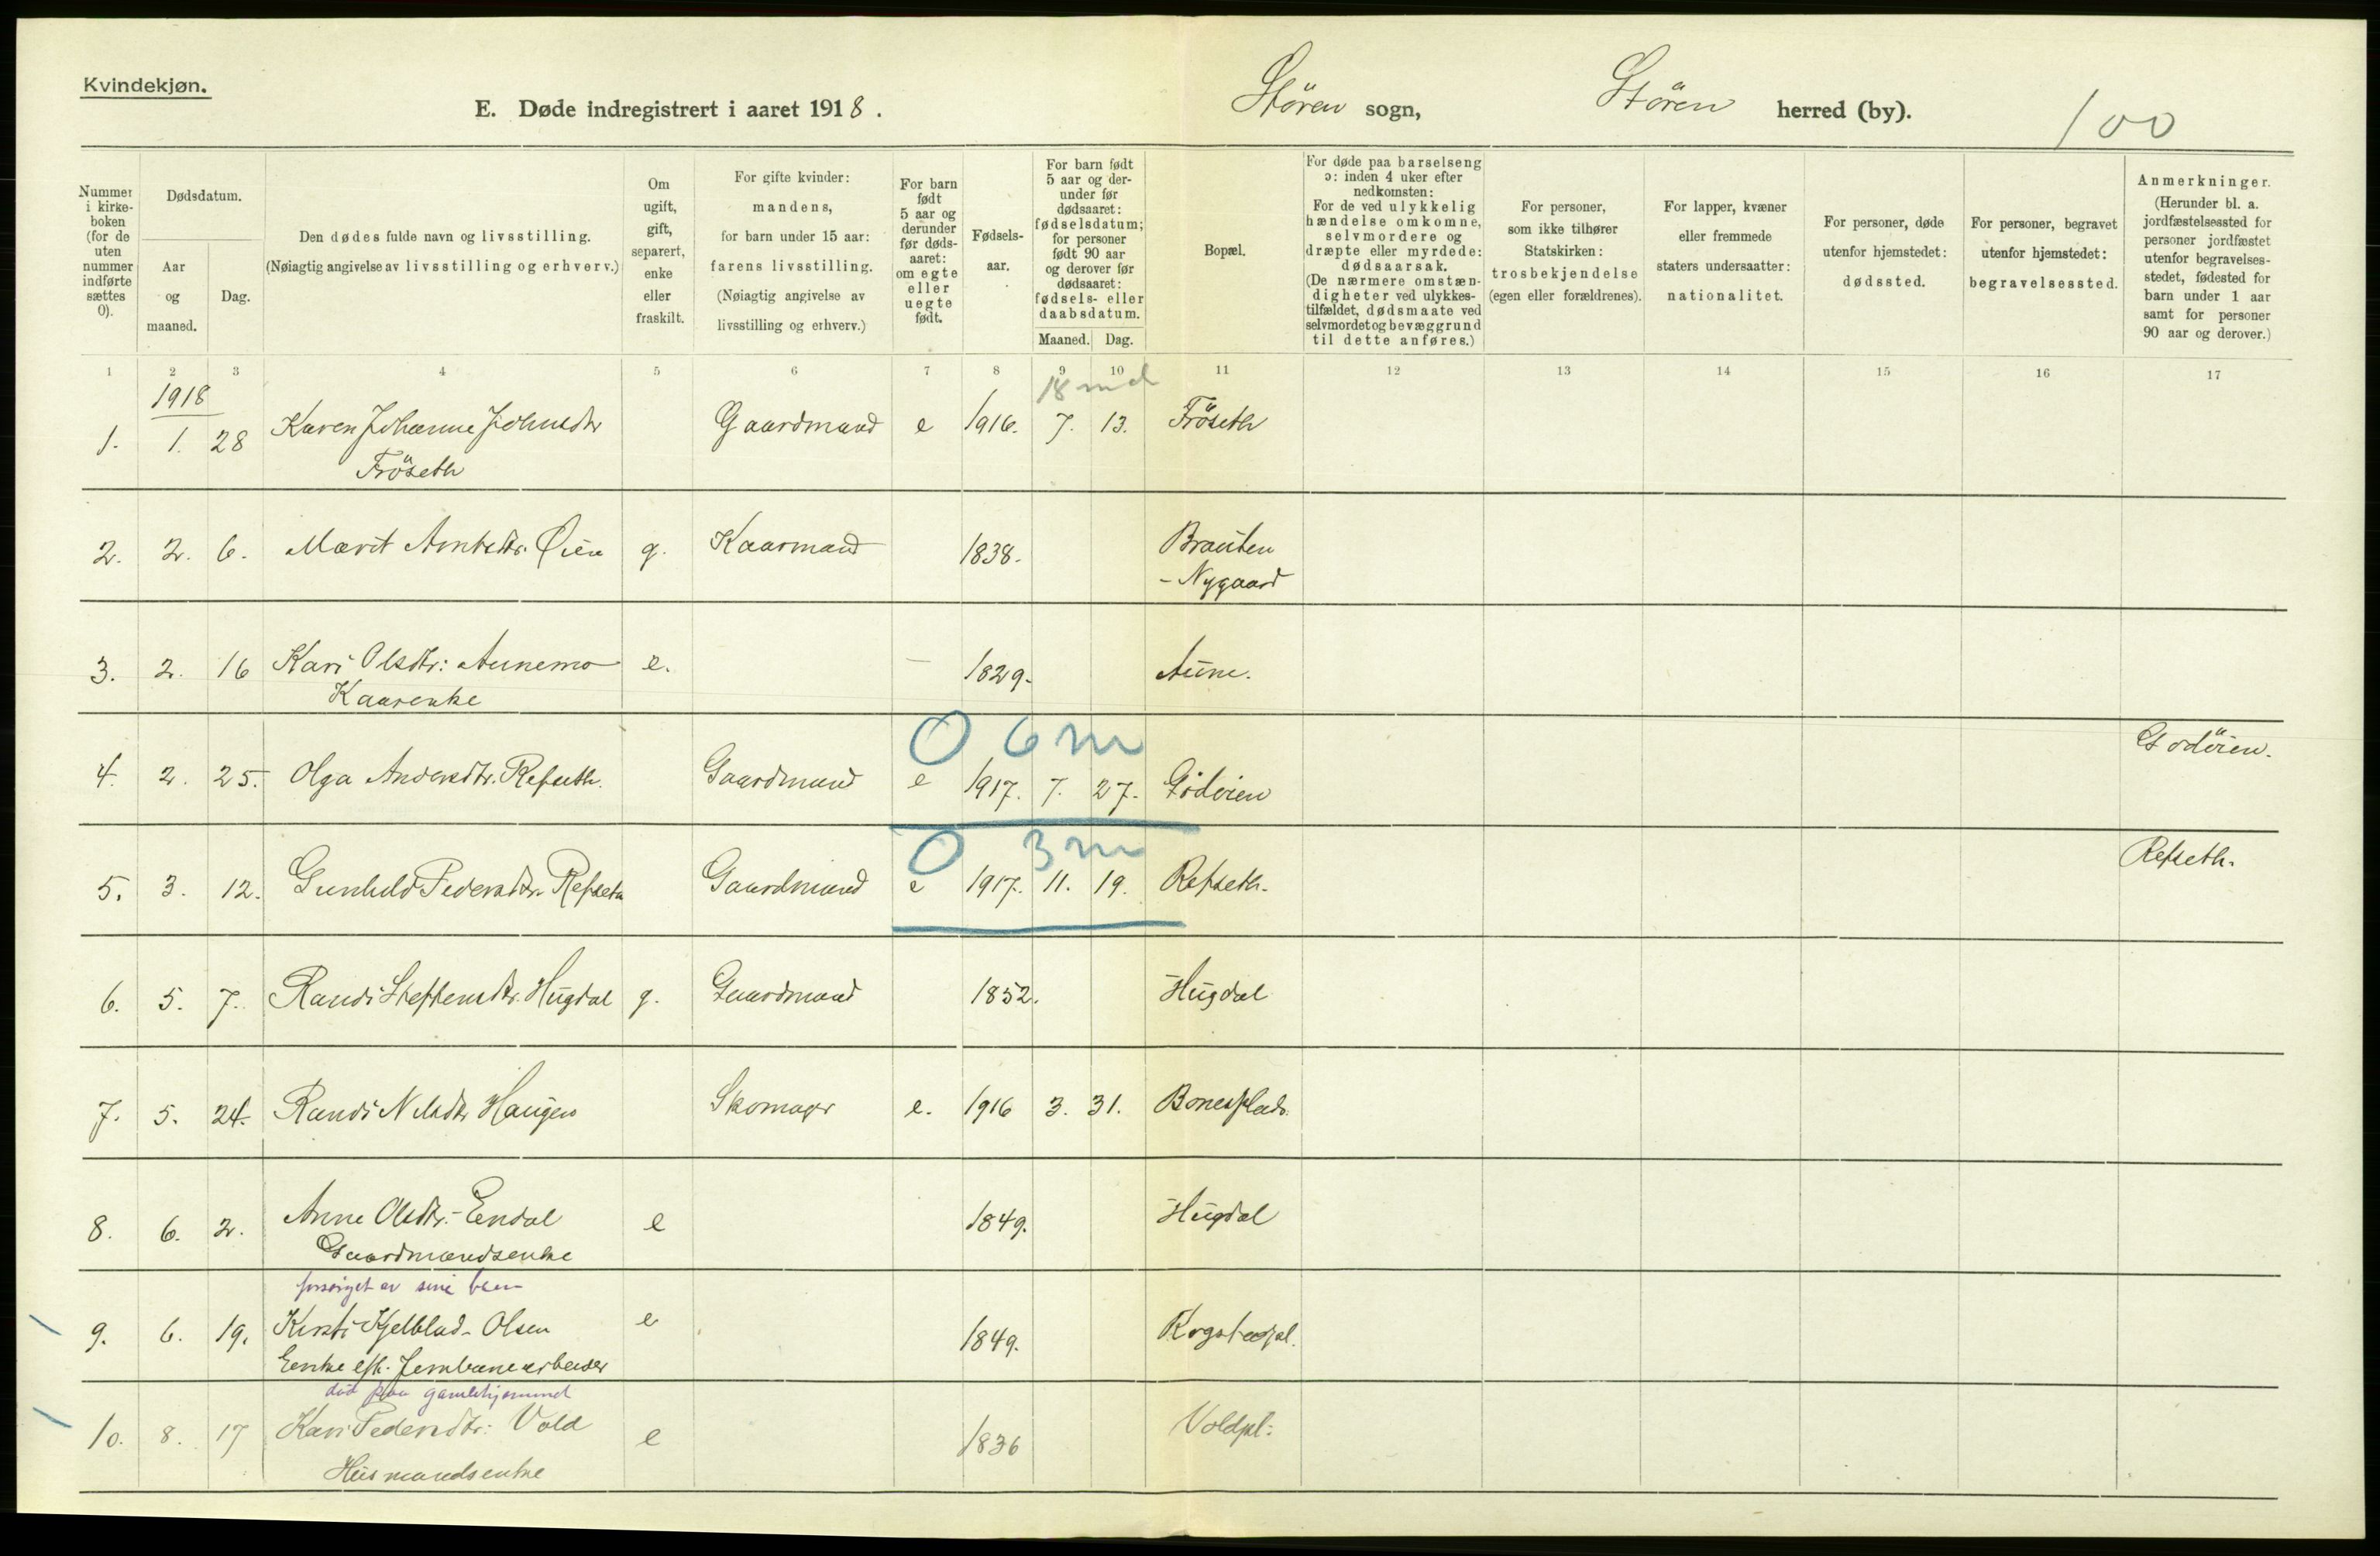 Kvindekjøn.
E. Døde indregistrert i aaret 1918.
Stören sogn,
Stören herred (by).
100
Nummer i kirkeboken (for de uten nummer indførte sættes 0).
Dødsdatum.
Aar og maaned.
Dag.
Den dødes fulde navn og livsstilling.
(Nøiagtig angivelse av livsstilling og erhverv.)
Om ugift, gift, separert, enke eller fraskilt.
For gifte kvinder: mandens, for barn under 15 aar: farens livsstilling. (Nøiagtig angivelse av livsstilling og erhverv.)
For barn født 5 aar og derunder før dødsaaret: om egte eller uegte født.
Fødselsaar.
For barn født 5 aar og derunder før dødsaaret: fødselsdatum; for personer født 90 aar og derover før dødsaaret: fødsels- eller daabsdatum.
Maaned. Dag.
Bopæl.
For døde paa barselseng ɔ: inden 4 uker efter nedkomsten: For de ved ulykkelig hændelse omkomne, selvmordere og dræpte eller myrdede: dødsaarsak. (De nærmere omstændigheter ved ulykkestilfældet, dødsmaate ved selvmordet og bevæggrund til dette anføres.)
For personer, som ikke tilhører Statskirken: trosbekjendelse (egen eller forældrenes).
For lapper, kvæner eller fremmede staters undersaatter: nationalitet.
For personer, døde utenfor hjemstedet: dødssted.
For personer, begravet utenfor hjemstedet: begravelsessted.
Anmerkninger. (Herunder bl. a. jordfæstelsessted for personer jordfæstet utenfor begravelsesstedet, fødested for barn under 1 aar samt for personer 90 aar og derover.)
1 2 3 4 5 6 7 8 9 10 11 12 13 14 15 16 17
1918
18 md
1. 1. 28 Karen Johanne Johnsdtr Gaardmand e 1916. 7. 13. Fröseth
Fröseth
2. 2. 6. Marit Arntsdtr. Øien g. Kaarmand 1838. Brauten
- Nygaard
3. 2. 16 Kari Olsdtr: Aunemo e. — 1829. Aune.
Kaarenke
0 6 m
4. 2. 25. Olga Andersdtr. Refseth. Gaardmand e 1917. 7. 27. Godöien Godöien.
0 3 m
5. 3. 12. Gunhild Pedersdtr. Refseth Gaardmand e 1917. 11. 19. Refseth. Refseth.
6. 5. 7. Randi Steffensdtr. Hugdal g. Gaardmand 1852. Hugdal
7. 5. 24. Randi Nilsdtr Haugen Skomager e. 1916 3. 31. Bonesplads.
8. 6. 2. Anne Olsdtr. Endal e 1849. Hugdal
Gaardmandsenke
forsörget av sine barn
9. 6. 19. Kirsti Kjelblad-Olsen e 1849. Rogstadpl.
Enke eft. Jernbanearbeider
död paa gamlehjemmet
10. 8. 17 Kari Pedersdtr: Vold e 1836 Voldpl:
Husmandsenke